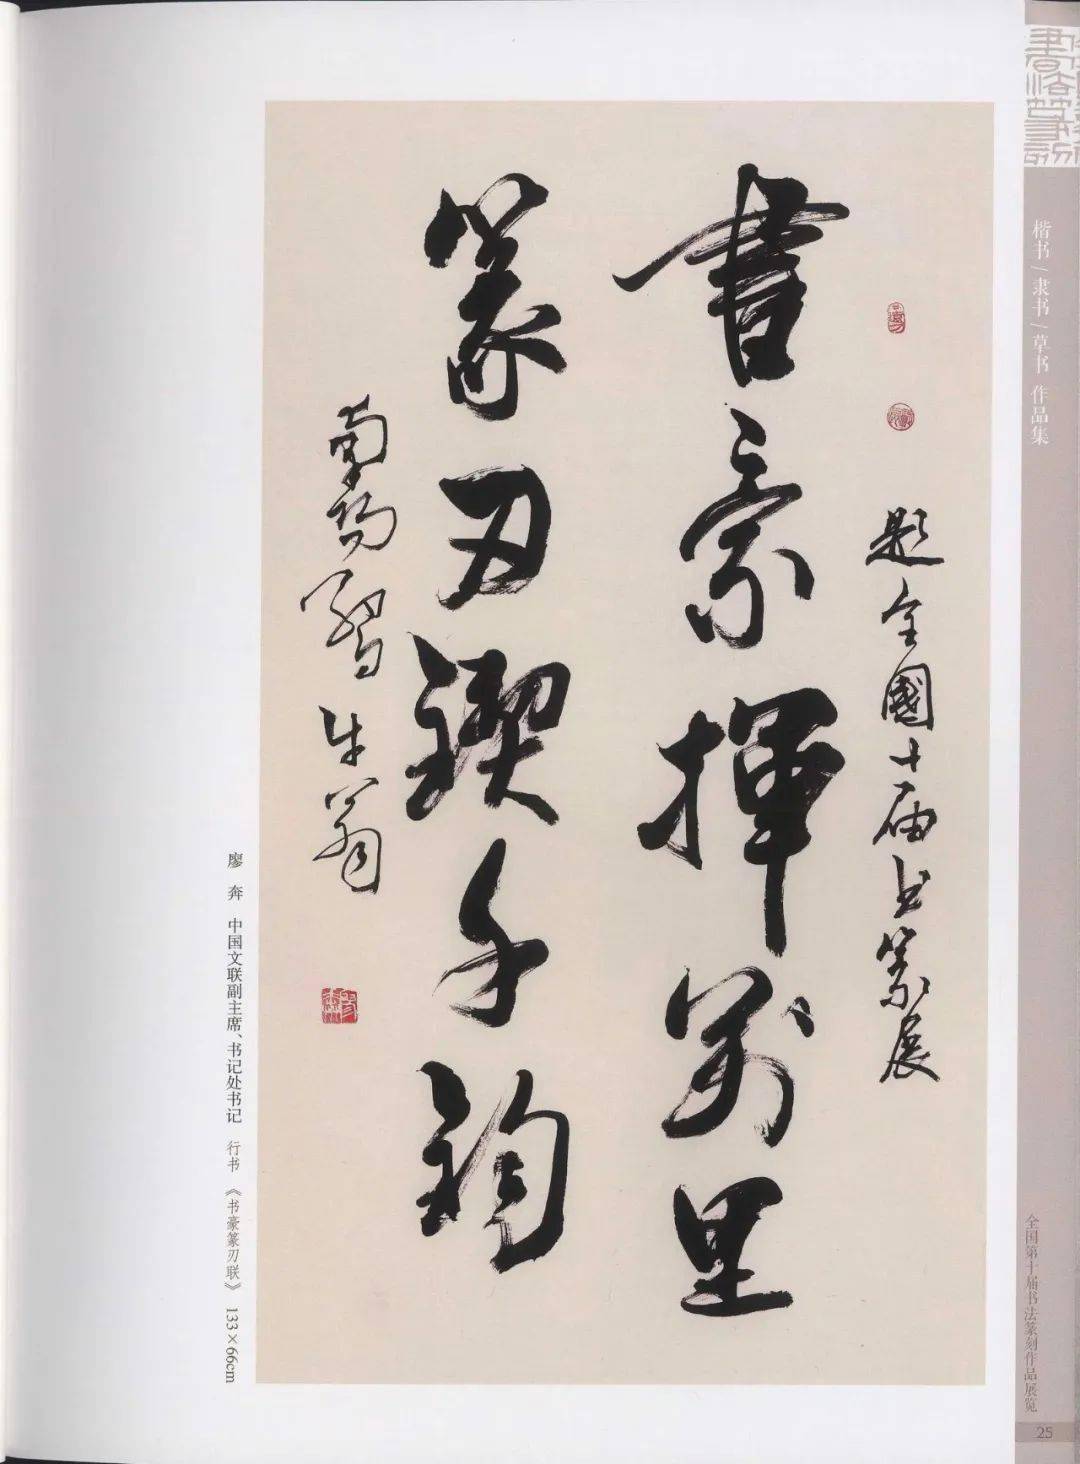 楷书/隶书/草书 作品集
全国第十届书法篆刻作品展览
25
題全國十届书篆展
書豪揮萬里
篆刃鍥千鈞
南陽
廖 奔 中国文联副主席、书记处书记 行书 《书豪篆刃联》 133×66cm